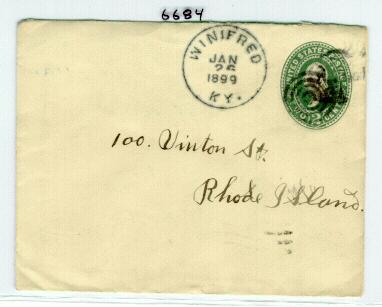 6684
WINIFRED
JAN
26
1899
KY.
UNITED STATES
TWO 2 CENTS
100. Vinton St.
Rhode Island.